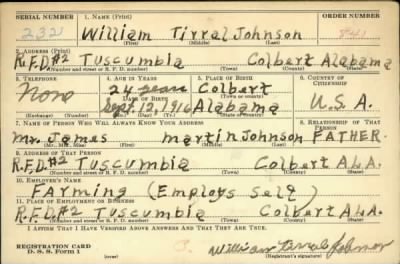 SERIAL NUMBER 1. NAME (Print) ORDER NUMBER
232 William Tirral Johnson 841
(First) (Middle) (Last)
2. ADDRESS (Print)
R.F.D#2 Tuscumbia Colbert Alabama
(Number and street or R. F. D. number) (Town) (County) (State)
3. TELEPHONE 4. AGE IN YEARS 5. PLACE OF BIRTH 6. COUNTRY OF CITIZENSHIP
None 24 years Colbert
DATE OF BIRTH (Town or county)
Sept. 12, 1916 Alabama U.S.A.
(Exchange) (Number) (Mo.) (Day) (Yr.) (State or country)
7. NAME OF PERSON WHO WILL ALWAYS KNOW YOUR ADDRESS 8. RELATIONSHIP OF THAT PERSON
Mr. James martin Johnson FATHER.
(Mr., Mrs., Miss) (First) (Middle) (Last)
9. ADDRESS OF THAT PERSON
R.F.D.#2 Tuscumbia Colbert ALA.
(Number and street or R. F. D. number) (Town) (County) (State)
10. EMPLOYER'S NAME
FArming (Employs self)
11. PLACE OF EMPLOYMENT OR BUSINESS
R.F.D.#2 Tuscumbia Colbert Ala.
(Number and street or R. F. D. number) (Town) (County) (State)
I AFFIRM THAT I HAVE VERIFIED ABOVE ANSWERS AND THAT THEY ARE TRUE.
REGISTRATION CARD
D. S. S. Form 1 William Tirral Johnson
(over) (Registrant's signature)